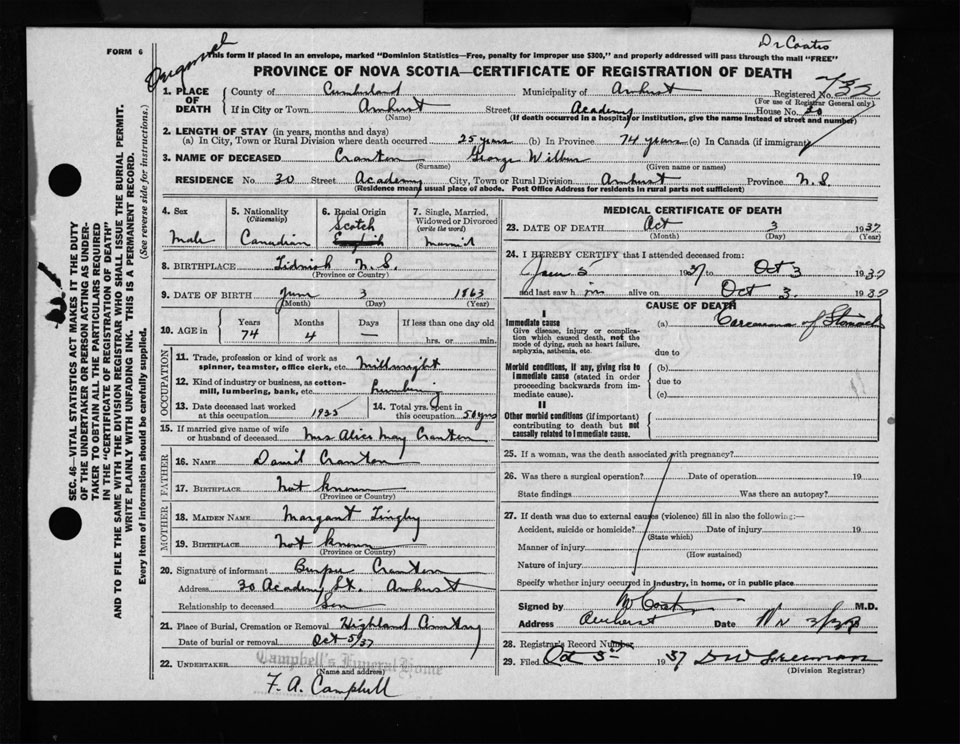 Dr Coates
FORM 6
This form if placed in an envelope, marked "Dominion Statistics—Free, penalty for improper use $300," and properly addressed will pass through the mail "FREE"
PROVINCE OF NOVA SCOTIA—CERTIFICATE OF REGISTRATION OF DEATH
1. PLACE OF DEATH
County of Cumberland Municipality of Amherst Registered No.
(For use of Registrar General only)
If in City or Town Amherst Street Academy House No. 30
(Name) (If death occurred in a hospital or institution, give the name instead of street and number)
2. LENGTH OF STAY (in years, months and days)
(a) In City, Town or Rural Division where death occurred 25 years (b) In Province 74 years (c) In Canada (if immigrant)
3. NAME OF DECEASED Cranton George Wilbur
(Surname) (Given name or names)
RESIDENCE No. 30 Street Academy City, Town or Rural Division Amherst Province N.S.
(Residence means usual place of abode. Post Office Address for residents in rural parts not sufficient)
4. Sex
Male
5. Nationality
(Citizenship)
Canadian
6. Racial Origin
Scotch
English
7. Single, Married, Widowed or Divorced
(write the word)
Married
8. BIRTHPLACE Tidnish N.S.
(Province or Country)
9. DATE OF BIRTH June 3 1863
(Month) (Day) (Year)
10. AGE in Years Months Days If less than one day old
74 4 — hrs. or min.
OCCUPATION
11. Trade, profession or kind of work as
spinner, teamster, office clerk, etc. Millwright
12. Kind of industry or business, as cotton-
mill, lumbering, bank, etc.
13. Date deceased last worked
at this occupation 1935
14. Total yrs. spent in
this occupation 50 yrs
15. If married give name of wife
or husband of deceased Mrs Alice May Cranton
FATHER
16. NAME David Cranton
17. BIRTHPLACE Not known
(Province or Country)
MOTHER
18. MAIDEN NAME Margaret Tingley
19. BIRTHPLACE Not known
(Province or Country)
20. Signature of informant Burpee Cranton
Address 30 Academy St. Amherst
Relationship to deceased Son
21. Place of Burial, Cremation or Removal Highland Cemetery
Date of burial or removal Oct 5/37
22. UNDERTAKER Campbell's Funeral Home
(Name and address)
F. A. Campbell
MEDICAL CERTIFICATE OF DEATH
23. DATE OF DEATH Oct 3 1937
(Month) (Day) (Year)
24. I HEREBY CERTIFY that I attended deceased from:
June 5 1937 to Oct 3 1937
and last saw him alive on Oct 3. 1937
CAUSE OF DEATH
I
Immediate cause
Give disease, injury or complica-
tion which caused death, not the
mode of dying, such as heart failure,
asphyxia, asthenia, etc.
(a) Carcinoma of Stomach
due to
Morbid conditions, if any, giving rise to
immediate cause (stated in order
proceeding backwards from im-
mediate cause).
(b)
due to
(c)
II
Other morbid conditions (if important)
contributing to death but not
causally related to immediate cause.
25. If a woman, was the death associated with pregnancy?
26. Was there a surgical operation? Date of operation 19
State findings Was there an autopsy?
27. If death was due to external causes (violence) fill in also the following:—
Accident, suicide or homicide? Date of injury 19
(State which)
Manner of injury
(How sustained)
Nature of injury
Specify whether injury occurred in industry, in home, or in public place
Signed by M.D.
Address Amherst Date
28. Registrar's Record Number
29. Filed Oct 5th 1937
(Division Registrar)
SEC. 46—VITAL STATISTICS ACT MAKES IT THE DUTY
OF THE UNDERTAKER OR PERSON ACTING AS UNDER-
TAKER TO OBTAIN ALL THE PARTICULARS REQUIRED
IN THE "CERTIFICATE OF REGISTRATION OF DEATH"
AND TO FILE THE SAME WITH THE DIVISION REGISTRAR WHO SHALL ISSUE THE BURIAL PERMIT.
WRITE PLAINLY WITH UNFADING INK. THIS IS A PERMANENT RECORD.
Every item of information should be carefully supplied. (See reverse side for instructions.)